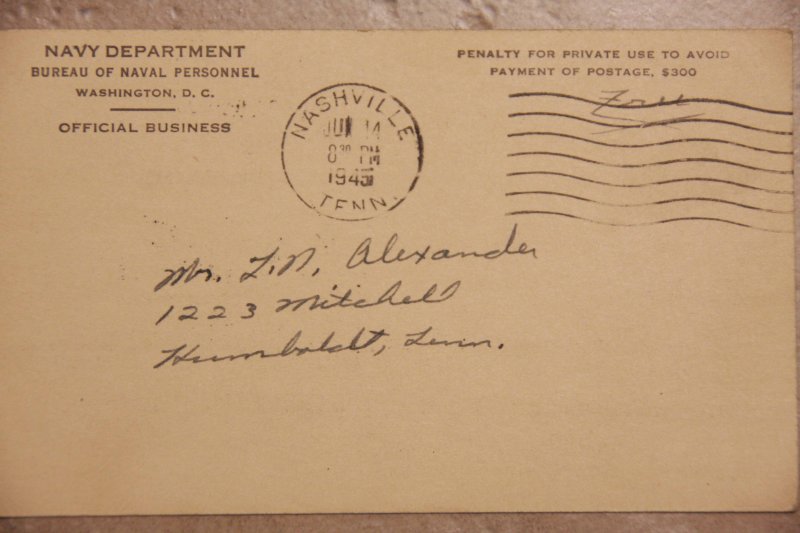 NAVY DEPARTMENT
BUREAU OF NAVAL PERSONNEL
WASHINGTON, D. C.
OFFICIAL BUSINESS
PENALTY FOR PRIVATE USE TO AVOID
PAYMENT OF POSTAGE, $300
Free
NASHVILLE
14
8 30 PM
1945
TENN.
Mr. L.N. Alexander
1223 Mitchell
Humboldt, Tenn.